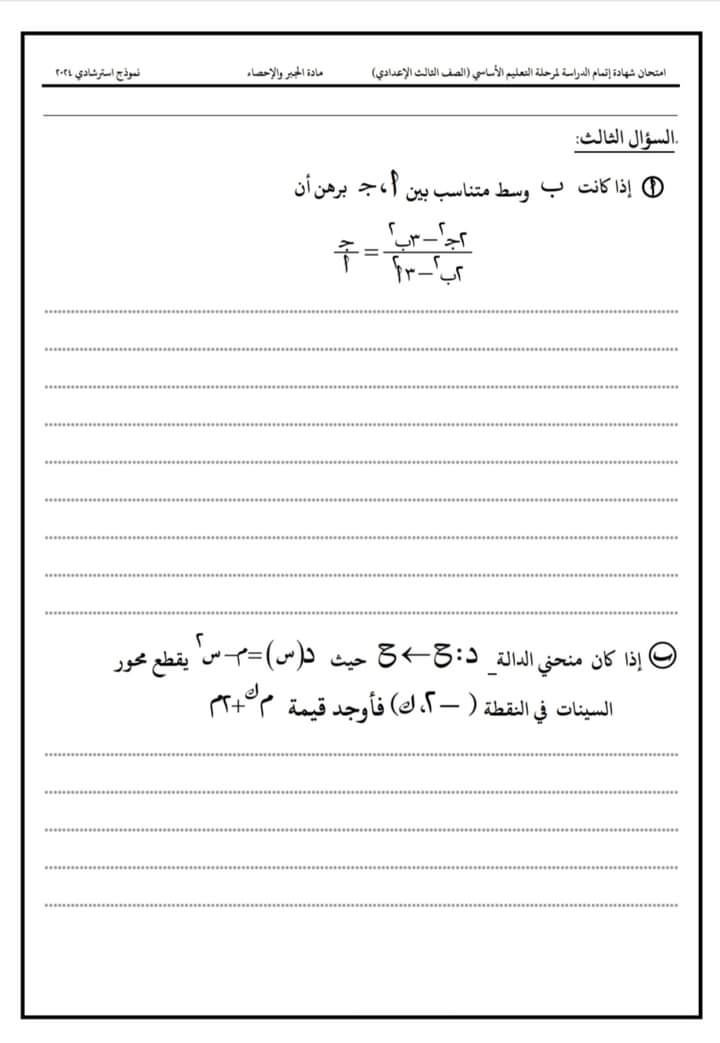 امتحان شهادة إتمام الدراسة لمرحلة التعليم الأساسي (الصف الثالث الإعدادي) مادة الجبر والإحصاء نموذج استرشادي ٢٠٢٤
السؤال الثالث:
أ إذا كانت ب وسط متناسب بين أ ، جـ برهن أن
(٢جـ² – ٣ب²)/(٢ب² – ٣أ²) = جـ/أ
ب إذا كان منحني الدالة د : ح ← ح حيث د(س) = م – س² يقطع محور
السينات في النقطة ( –٢ ، ك) فأوجد قيمة م^ك + ٢م